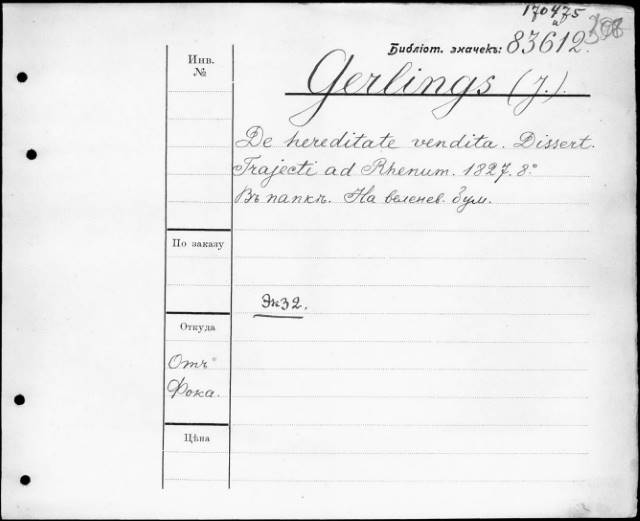 170475
Библіот. значекъ: 83612.
Инв.
№
Gerlings (J.).
De hereditate vendita. Dissert.
Trajecti ad Rhenum. 1827. 8.°
Въ папкѣ. На веленев. бум.
По заказу
Экз2.
Откуда
Отъ
Фока.
Цѣна